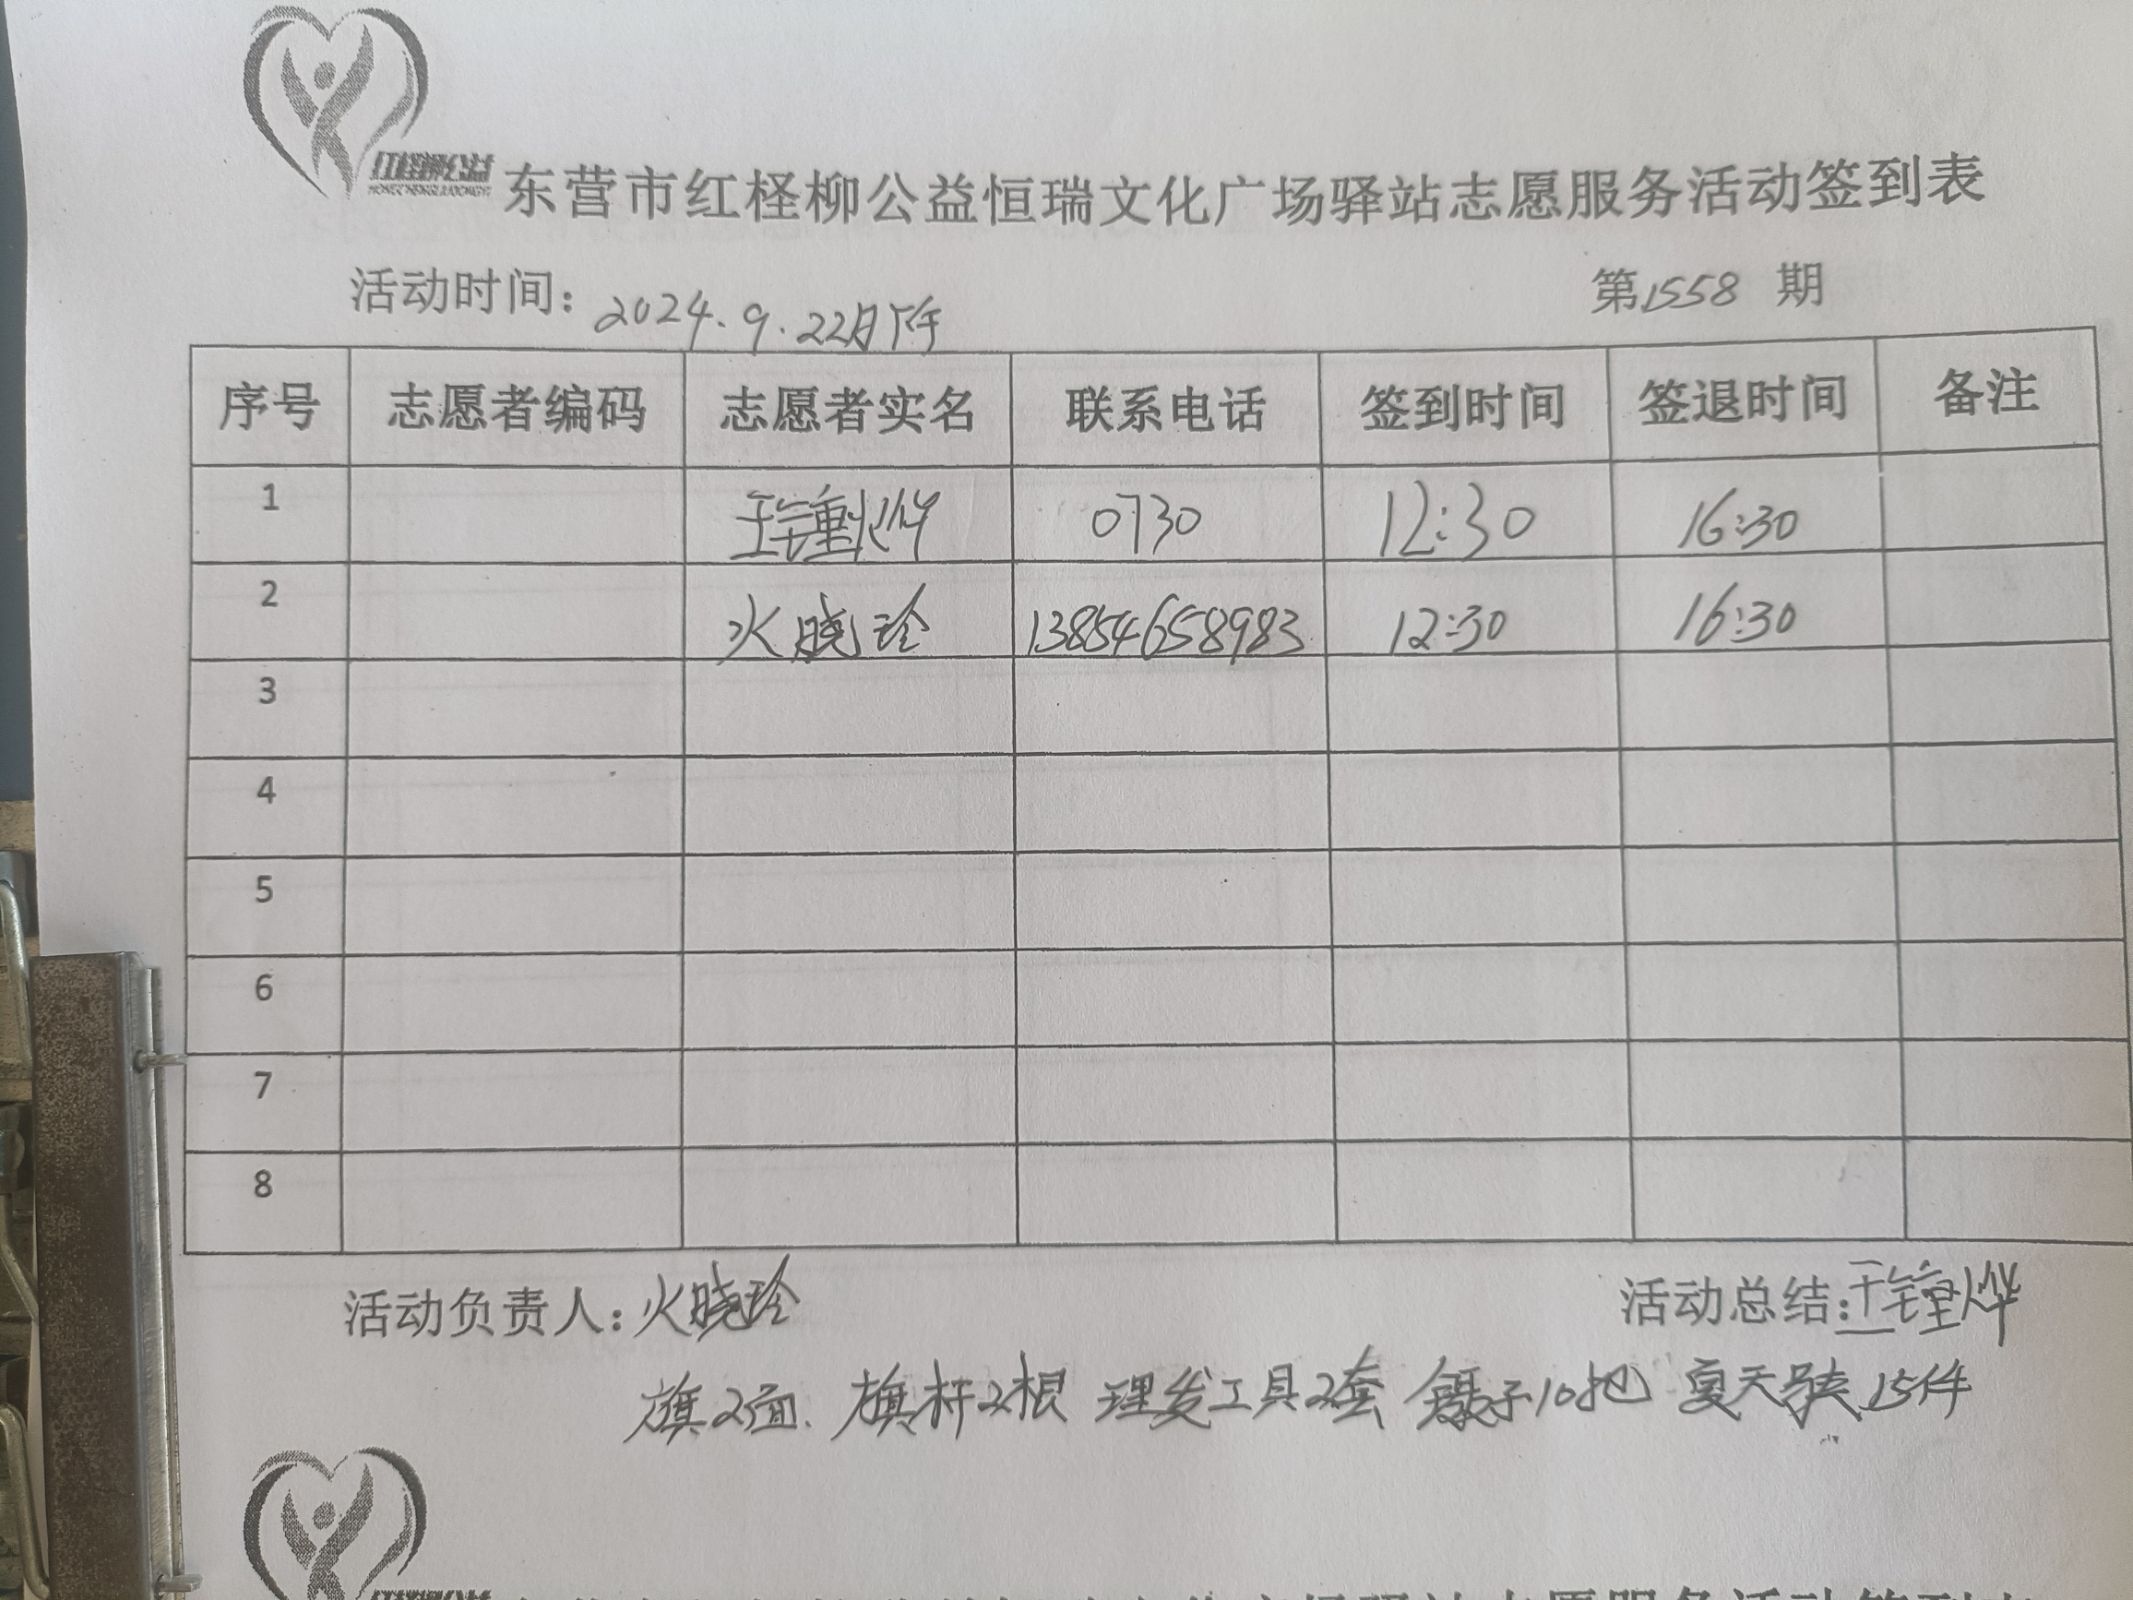 红柽柳公益
HONGCHENGLIUGONGYI
东营市红柽柳公益恒瑞文化广场驿站志愿服务活动签到表
活动时间：2024.9.22日下午 第1558期
序号 志愿者编码 志愿者实名 联系电话 签到时间 签退时间 备注
1 0730 12:30 16:30
2 火晓玲 13854658983 12:30 16:30
3
4
5
6
7
8
活动负责人：火晓玲 活动总结：
旗2面、旗杆2根 理发工具2套 镊子10把 夏天 15件
红柽柳公益